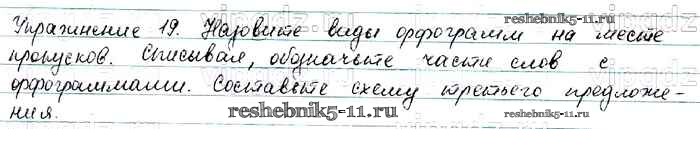 Упражнение 19. Назовите виды орфограмм на месте
пропусков. Списывая, обозначьте части слов с
орфограммами. Составьте схему третьего предложе-
ния.
reshebnik5-11.ru
reshebnik5-11.ru